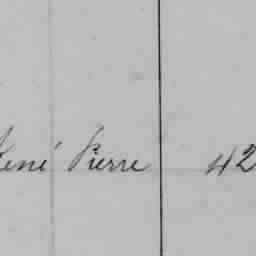 René Pierre 42